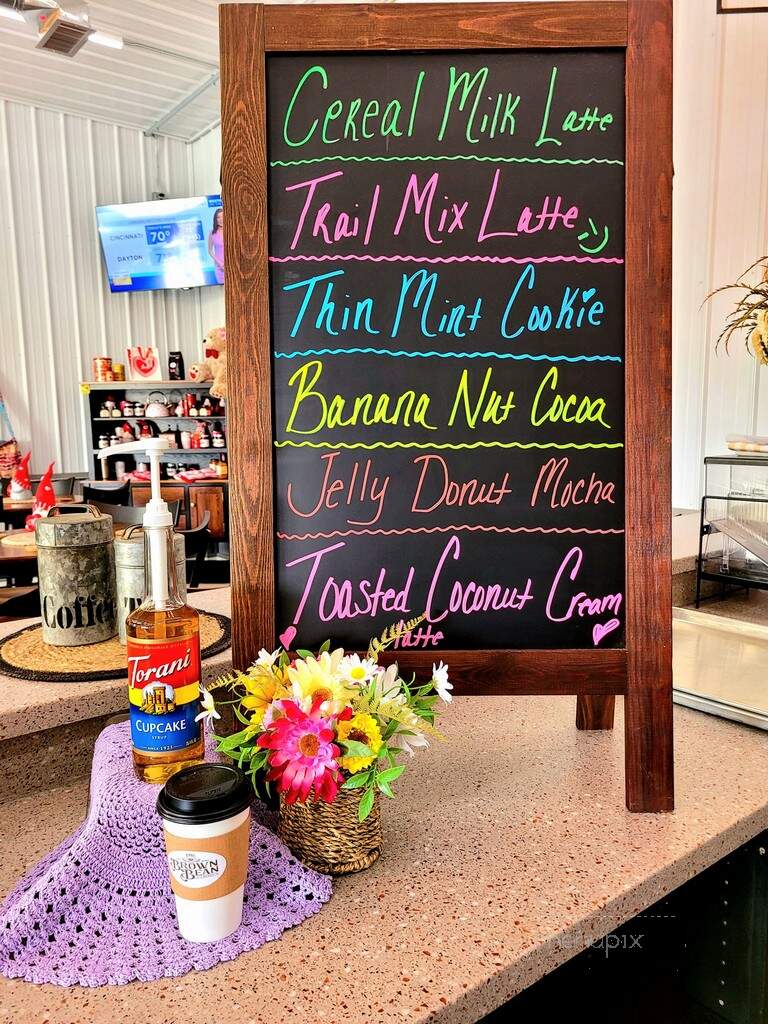 Cereal Milk Latte
Trail Mix Latte
Thin Mint Cookie
Banana Nut Cocoa
Jelly Donut Mocha
Toasted Coconut Cream
latte
CINCINNATI 70°
DAYTON
Coffee
Torani
CUPCAKE
SYRUP
BROWN
BEAN